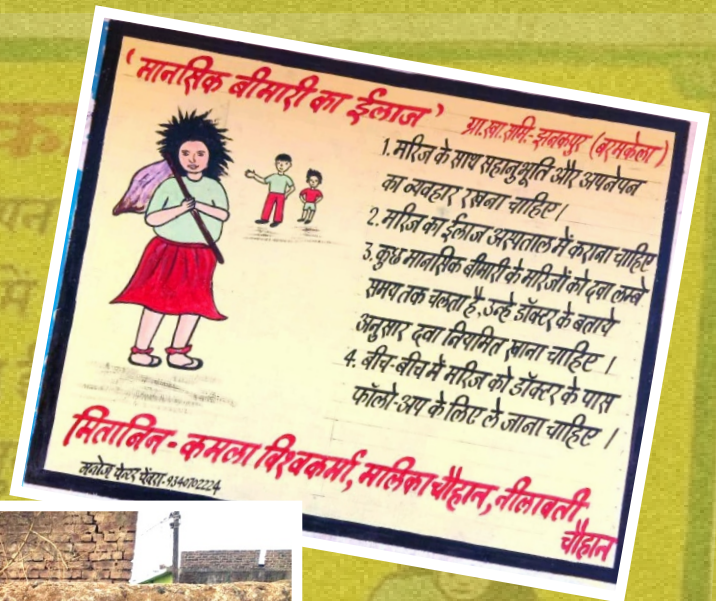 'मानसिक बीमारी का ईलाज'
ग्रा.स्वा.समि.-झनकपुर (बरमकेला)
1. मरिज के साथ सहानुभूति और अपनेपन
का व्यवहार रखना चाहिए।
2. मरिज का ईलाज अस्पताल में कराना चाहिए
3. कुछ मानसिक बीमारी के मरिजों को दवा लम्बे
समय तक चलता है, उन्हे डॉक्टर के बताये
अनुसार दवा नियमित खाना चाहिए ।
4. बीच-बीच में मरिज को डॉक्टर के पास
फॉलो-अप के लिए ले जाना चाहिए ।
मितानिन - कमला विश्वकर्मा, मलिका चौहान, नीलावती
चौहान
मनोज पेन्टर 9340702224